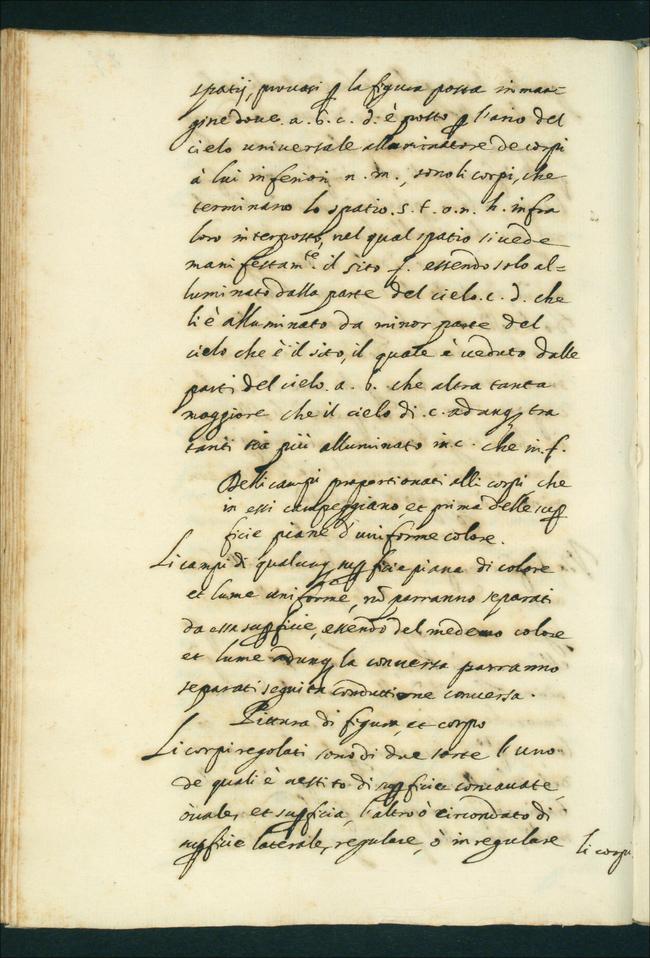 spatij, provasi p la figura posta in mar=
gine dove .a. b. c. d. è posto p l'arco del
cielo universale alluminatore de corpi
à lui inferiori n. m., sono li corpi, che
terminano lo spatio .s. t. o. n. h. infra
loro interposto, nel qual spatio si vede
manifestam.te il sito f. essendo solo al=
luminato dalla parte del cielo .c. d. che
li è alluminato da minor parte del
cielo che è il sito, il quale è veduto dalle
parti del cielo .a. b. che altra tanta
maggiore che il cielo di .c. adunq tra
tanti sia più alluminato in .c. che in .f.
Delli campi proportionati alli corpi che
in essi campeggiano, et prima delle sup
ficie piane d'uniforme colore.
Li campi di qualunq supficie piana di colore
et lume uniforme, nō parranno separati
da essa supficie, essendo del medemo colore
et lume adunq la conversa parranno
separati seguita conduttione conversa.
Pittura di figura, et corpo
Li corpi regolati sono di due sorte l'uno
de quali è vestito di supficie concavate,
ovale, et supficia, l'altro è circondato di
supficie laterale, regulare, ò inregulare
li corpi